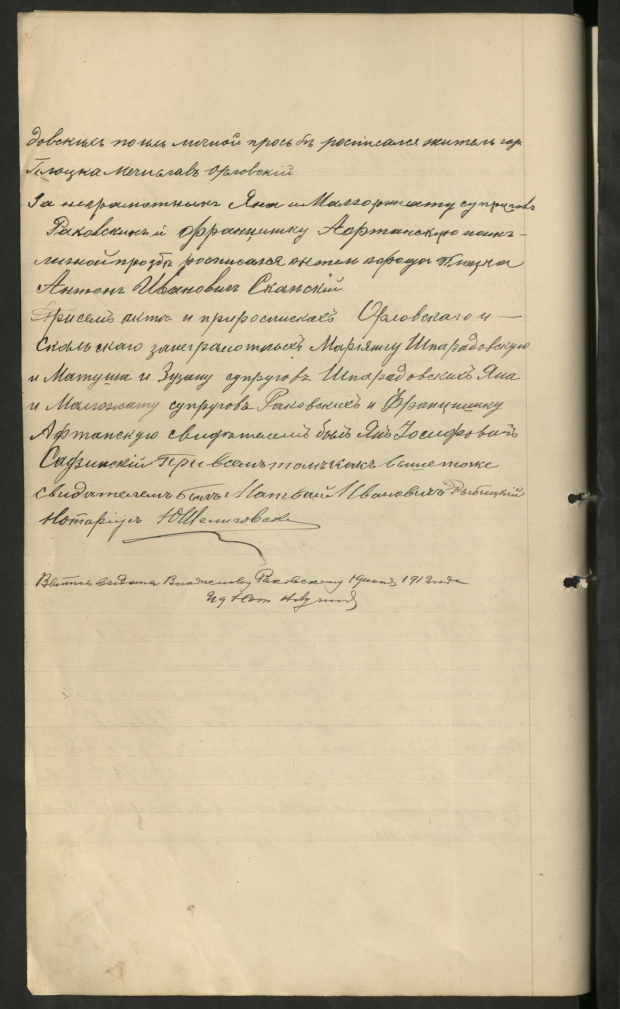 довскихъ по ихъ личной прось бѣ росписался житель гор
Плоцка Мечиславъ Орловскій
За неграмотныхъ Яна и Малгоржату супруговъ
Раковскихъ и Францишку Афтанскую по ихъ -
личной прозбѣ росписался житель города Плоцка
Антонъ Ивановичъ Скапскій
При семъ актѣ и при роспискахъ Орловскаго и —
Скапьскаго за неграмотныхъ Марьянну Шпарадовскую
и Матуша и Зузану супруговъ Шпарадовскихъ Яна
и Малгожату супруговъ Раковскихъ и Францишку
Афтанскую свидѣтелемъ былъ Янъ Іосифовичъ
При всемъ томъ какъ выше тоже
свидѣтелемъ былъ Иванъ Ивановичъ Рыбицкій
Нотаріусъ
Выпись выдана Раковскому 1912 года